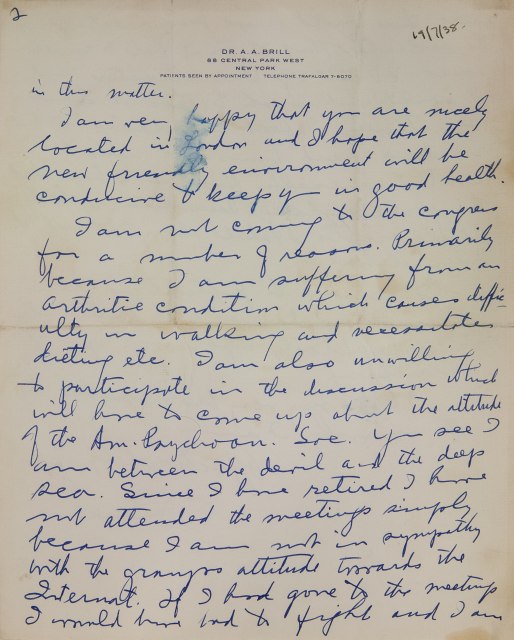 2
19/7/38.
DR. A. A. BRILL
88 CENTRAL PARK WEST
NEW YORK
PATIENTS SEEN BY APPOINTMENT TELEPHONE TRAFALGAR 7-6070
in this matter.
I am very happy that you are nicely
located in London and I hope that the
new friendly environment will be
conducive to keep yr in good health.
I am not coming to the congress
for a number of reasons. Primarily
because I am suffering from an
arthritic condition which causes diffic-
ulty in walking and necessitates
dieting etc. I am also unwilling
to participate in the discussion which
will have to come up about the attitude
of the Am. Psychoan. Soc. You see I
am between the devil and the deep
sea. Since I have retired I have
not attended the meetings simply
because I am not in sympathy
with the groups attitude towards the
Internat. If I had gone to the meetings
I would have had to fight and I am